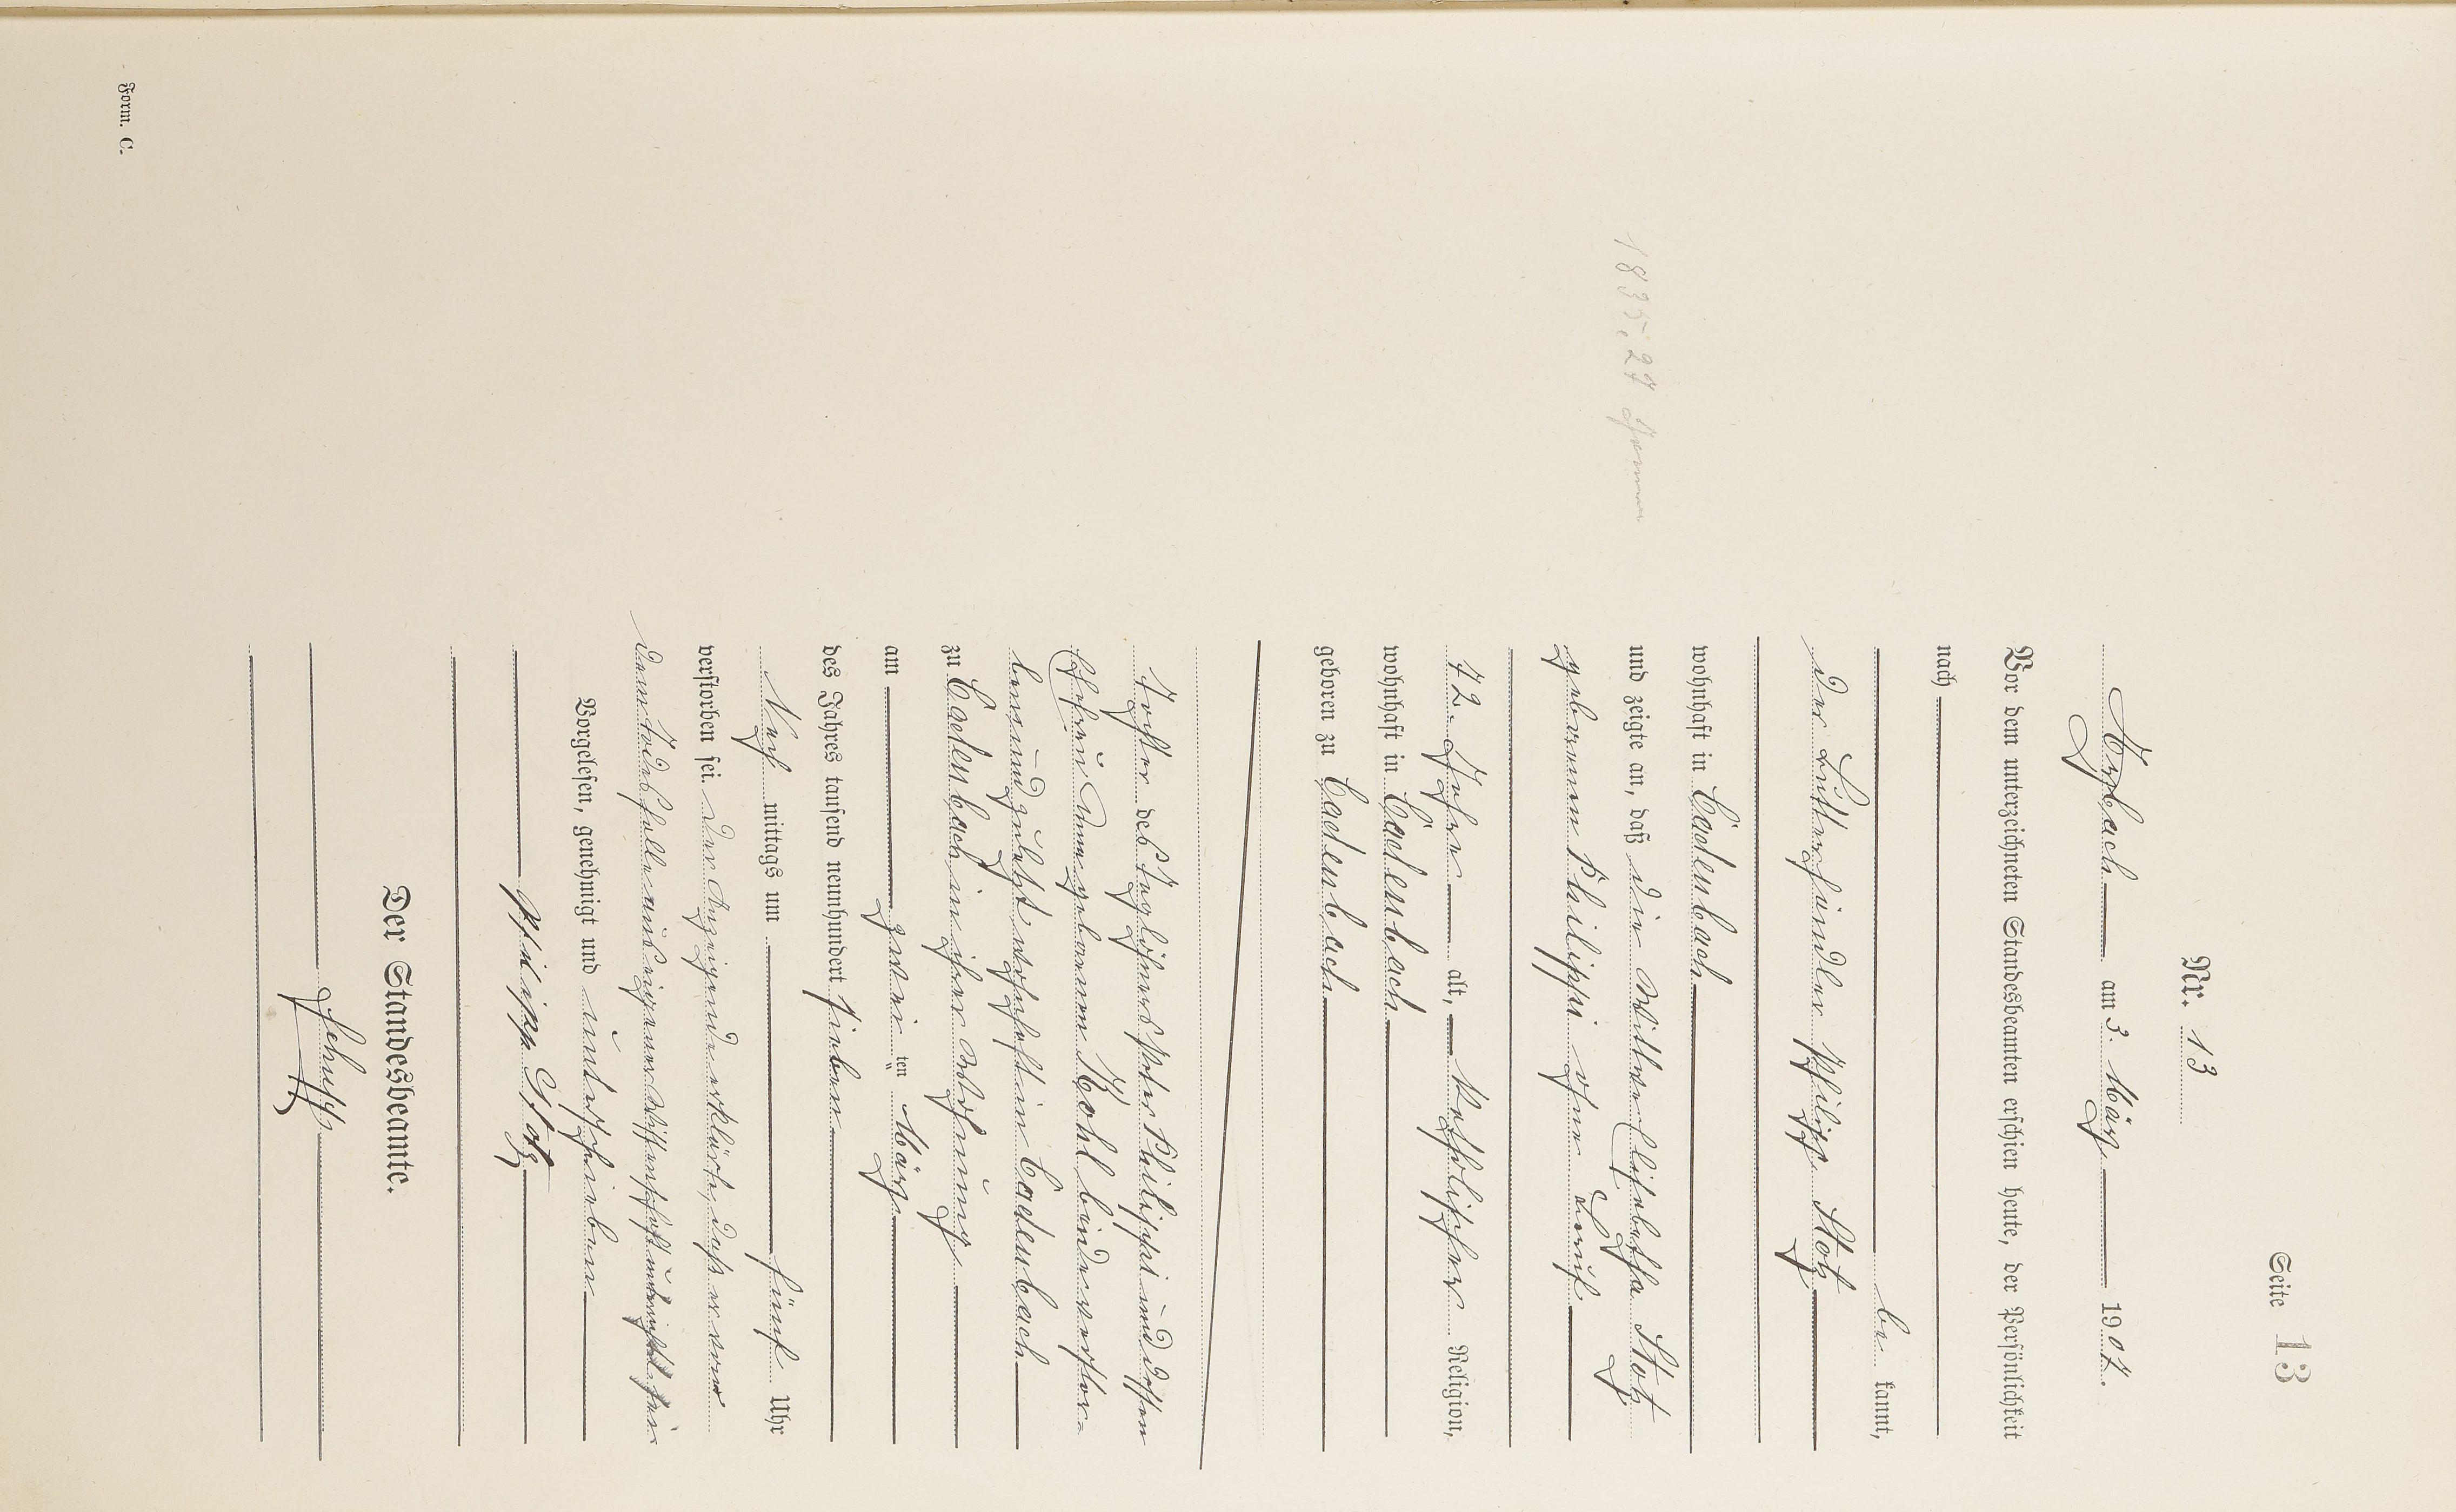 Seite 13
Nr. 13
Arzbach am 3. März 1907.
Vor dem unterzeichneten Standesbeamten erschien heute, der Persönlichkeit
nach
be kannt,
der Butterhändler Philipp Stotz
wohnhaft in Cadenbach
und zeigte an, daß die Witwe Elisabetha Stotz
geborene Philippi ohne Beruf
72 Jahre alt, katholischer Religion,
wohnhaft in Cadenbach
geboren zu Cadenbach
Tochter des Taglöhners Peter Philippi und dessen
Ehefrau Anna geborenen Kohlbinder verstor-
ben und zuletzt wohnhaft in Cadenbach
zu Cadenbach in ihrer Wohnung
am zwei ten März
des Jahres tausend neunhundert sieben
Nach mittags um fünf Uhr
verstorben sei. Der Anzeigende erklärte, daß er von
dem Todesfalle aus eigener Wissenschaft unterrichtet sei
Vorgelesen, genehmigt und unterschrieben
Philipp Stotz
Der Standesbeamte.
1835, 27
Form. C.